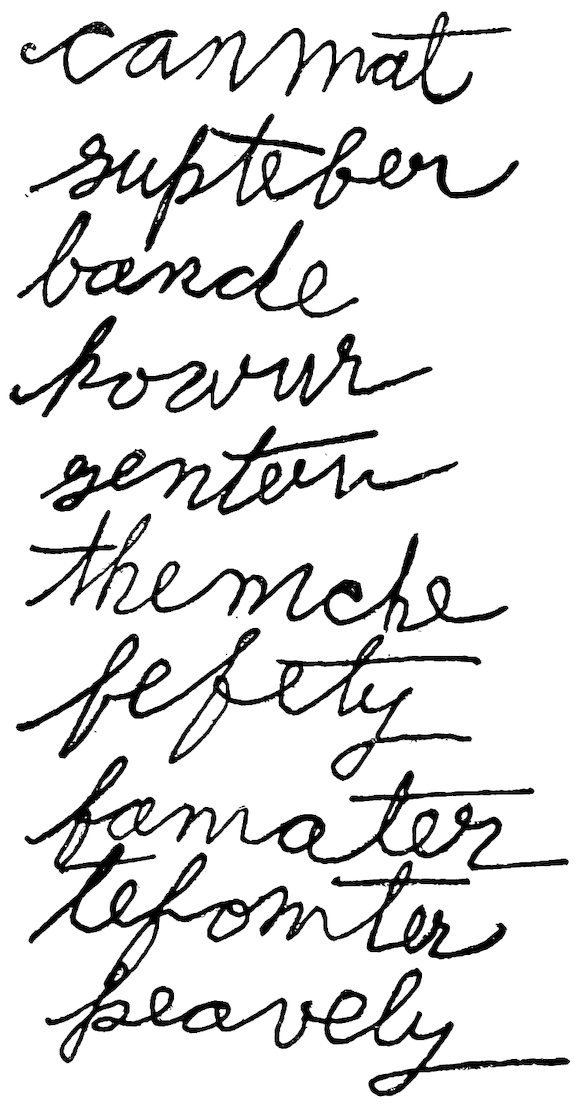 canmat
supteber
bande
howur
senton
themche
fefety
famater
tefomter
peavely